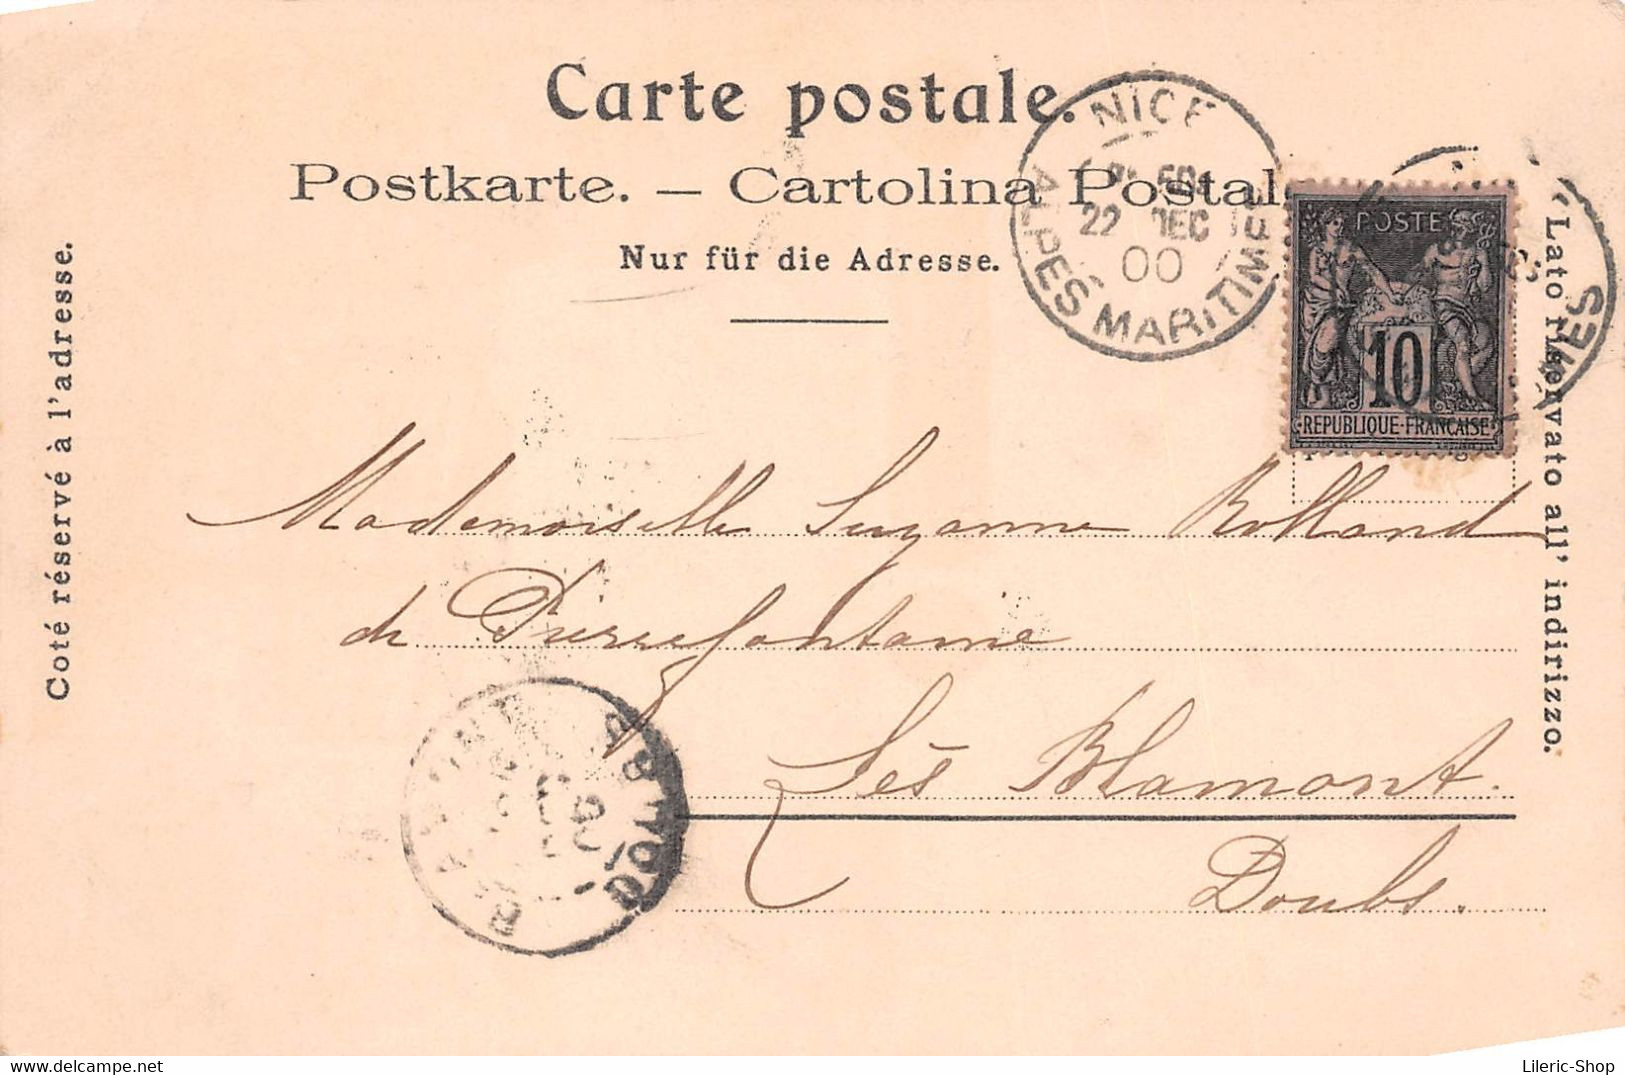 Carte postale.
Postkarte. — Cartolina Postal
Nur für die Adresse.
Coté réservé à l'adresse.
Lato riservato all' indirizzo.
NICE
22 DEC
00
ALPES MARITIMES
MES
POSTE
10
REPUBLIQUE FRANÇAISE
Mademoiselle Suzanne Rolland
de Pierrefontaine
Lès Blamont.
Doubs.
DOUBS
Lileric-Shop